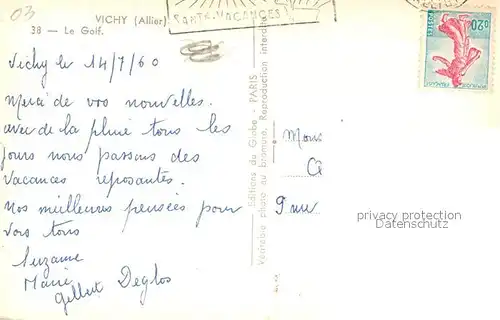 03
VICHY (Allier)
38 - Le Golf.
SANTÉ-VACANCES
0,20
POSTES
Vichy le 14/7/60
Merci de vos nouvelles.
avec de la pluie tous les
jours nous passons des
vacances reposantes.
Nos meilleures pensées pour
vous tous
Suzanne
Marie
Gilbert Deglos
Editions du Globe - PARIS
Véritable photo au bromure, Reproduction interdite
Mons
privacy protection
Datenschutz